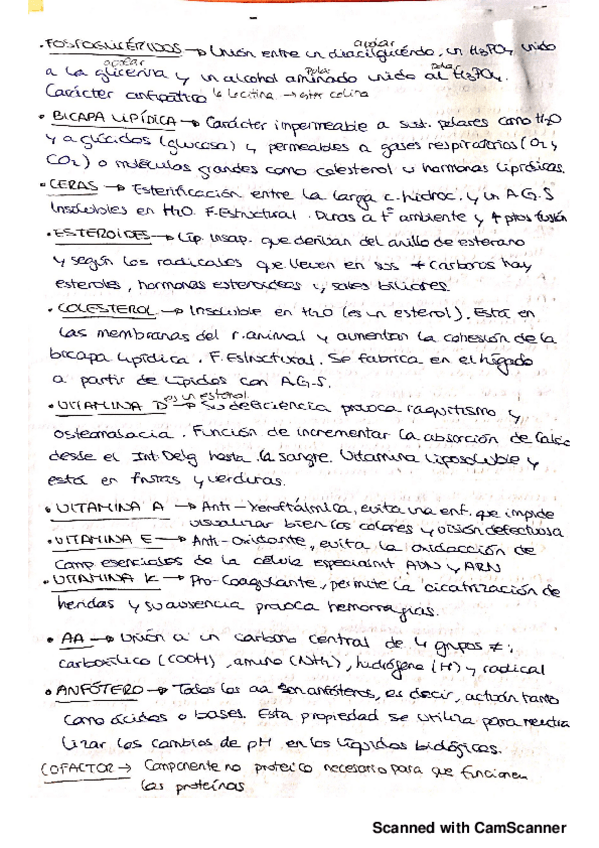 apolar
· FOSFOGLICÉRIDOS → Unión entre un diacilglicérido, un H3PO4 unido
apolar polar polar
a la glicerina y un alcohol aminado unido al H3PO4.
Carácter antipático la lecitina → ester colina
• BICAPA LIPÍDICA → Carácter impermeable a sust. polares como H2O
y a glúcidos (glucosa) y permeables a gases respiratorios (O2 y
CO2) o moléculas grandes como colesterol u hormonas lipídicas.
• CERAS → Esterificación entre la larga c. hidroc. y un A.G.S
Insolubles en H2O. F. Estructural. Duras a tª ambiente y ↑ ptos fusión
• ESTEROIDES → Líp. insap. que derivan del anillo de esterano
y según los radicales que lleven en sus ≠ carbonos hay
esteroles, hormonas esteroideas y sales biliares.
• COLESTEROL → Insoluble en H2O (es un esterol). Está en
las membranas del r. animal y aumentan la cohesión de la
bicapa lipídica. F. Estructural. Se fabrica en el hígado
a partir de lípidos con A.G.S.
es un esterol
• VITAMINA D → Su deficiencia provoca raquitismo y
osteomalacia. Función de incrementar la absorción de Calcio
desde el Int. Delg hasta la sangre. Vitamina liposoluble y
está en frutas y verduras.
• VITAMINA A → Anti-Xeroftálmica, evita una enf. que impide
visualizar bien los colores y visión defectuosa
• VITAMINA E → Anti-Oxidante, evita la oxidacción de
comp esenciales de la célula especialmt ADN y ARN
• VITAMINA K → Pro-Coagulante, permite la cicatrización de
heridas y su ausencia provoca hemorragias.
• AA → Unión a un carbono central de 4 grupos ≠:
carboxílico (COOH), amino (NH2), hidrógeno (H) y radical
• ANFÓTERO → Todos los aa son anfóteros, es decir, actúan tanto
como ácidos o bases. Esta propiedad se utiliza para neutra
lizar los cambios de pH en los líquidos biológicos.
COFACTOR → Componente no proteico necesario para que funcionen
las proteínas
Scanned with CamScanner